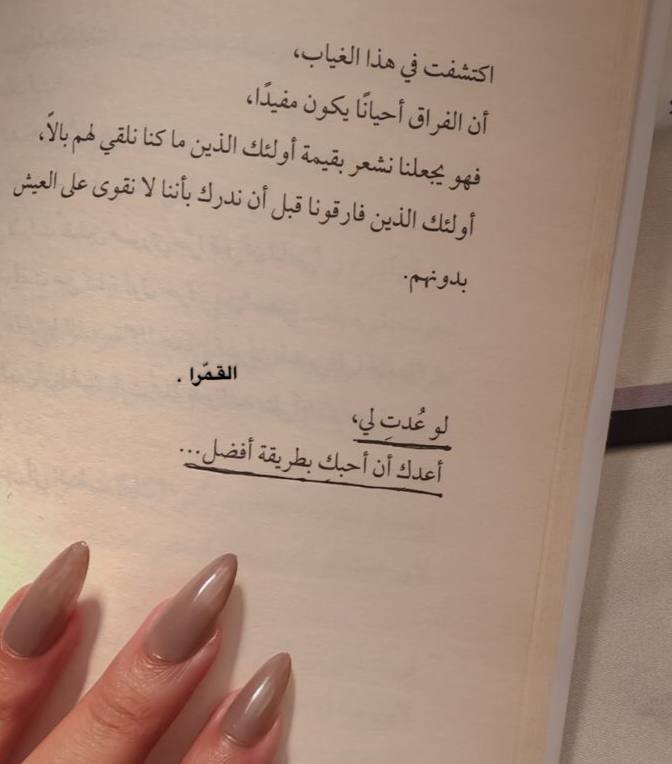 اكتشفت في هذا الغياب،
أن الفراق أحيانًا يكون مفيدًا،
فهو يجعلنا نشعر بقيمة أولئك الذين ما كنا نلقي لهم بالاً،
أولئك الذين فارقونا قبل أن ندرك بأننا لا نقوى على العيش
بدونهم.
القمّرا .
لو عُدتِ لي،
أعدك أن أحبكِ بطريقة أفضل...